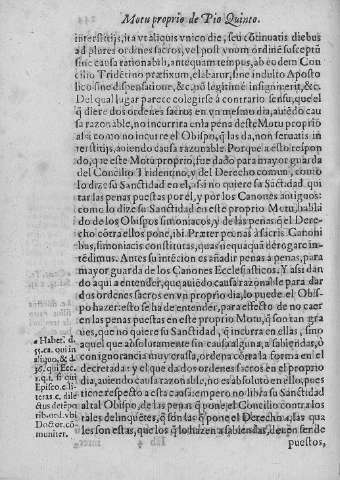 Motu proprio de Pio Quinto.
interstitijs, ita vt aliquis vnico die, seu cõtinuatis diebus
ad plures ordines sacros, vel post vnum ordinẽ susceptũ
sine causa rationabili, ante quam tempus, ab eodem Con
cilio Tridẽtino præfixum, elabatur, sine indulto Aposto
lico sine dispensatione, &c. nõ legitimè insignirerit, &c.
Del qual lugar parece colegirse à contrario sensu, que el
q̃ diere dos ordenes sacros en vn mesmo dia, auiẽdo cau
sa razonable, no incurre en la pena deste Motu proprio
alsi como no incurre el Obispo, q̃ las da, non seruatis in
terstitijs, auiendo causa razonable Porque à esto respon
do, q̃ este Motu proprio, fue dado para mayor guarda
del Concilio Tridentino, y del Derecho comun, como
lo dize su Sanctidad en el, assi no quiere su Sãctidad qui
tar las penas puestas por él, y por los Canones antiguos:
como lo dize su Sanctidad en este proprio Motu, hablã
do de los Obispos simoniacos, y de las penas q̃ el Dere-
cho cõtra ellos pone, ibi. Præter pœnas à sacris Canoni
bus, simoniacis constitutas, quas nequaquã derogare in-
tẽdimus. Antes su intẽcion es añadir penas à penas, para
mayor guarda de los Canones Ecclesiasticos. Y assi dan
do aqui a entender, que auiẽdo causa razonable para dar
dos ordenes sacros en vn proprio dia, lo puede el Obis-
po hazer: esto se ha de entender, para effecto de no caer
en las penas puestas en este proprio Motu, q̃ son tan gra
ues, que no quiere su Sanctidad, q̃ incurra en ellas, sino
aquel que absolutamente sin causa alguna, à sabiẽdas, ó
con ignorancia muy crassa, ordena cõtra la forma en el
decretada: y el que da dos ordenes sacros en el proprio
dia, auiendo causa razonable, no es absoluto en ello, pues
tiene respecto a esta causa: empero no libra su Sanctidad
al tal Obispo, de las penas q̃ pone el Concilio contra los
tales delinquẽtes, q̃ son las q̃ pone el Derecho a, las qua
les son estas, que los q̃ lo hazen à sabiendas, deuen ser de
puestos,
a Haber. d.
55. ca. qui in
aliquo, & d.
36. qui Ecc.
1. q. 1. si qui
Episco. c. lit
teras. c. dile
ctus de tẽpo
rib. ord. vbi
Doctor. cõ
muniter.